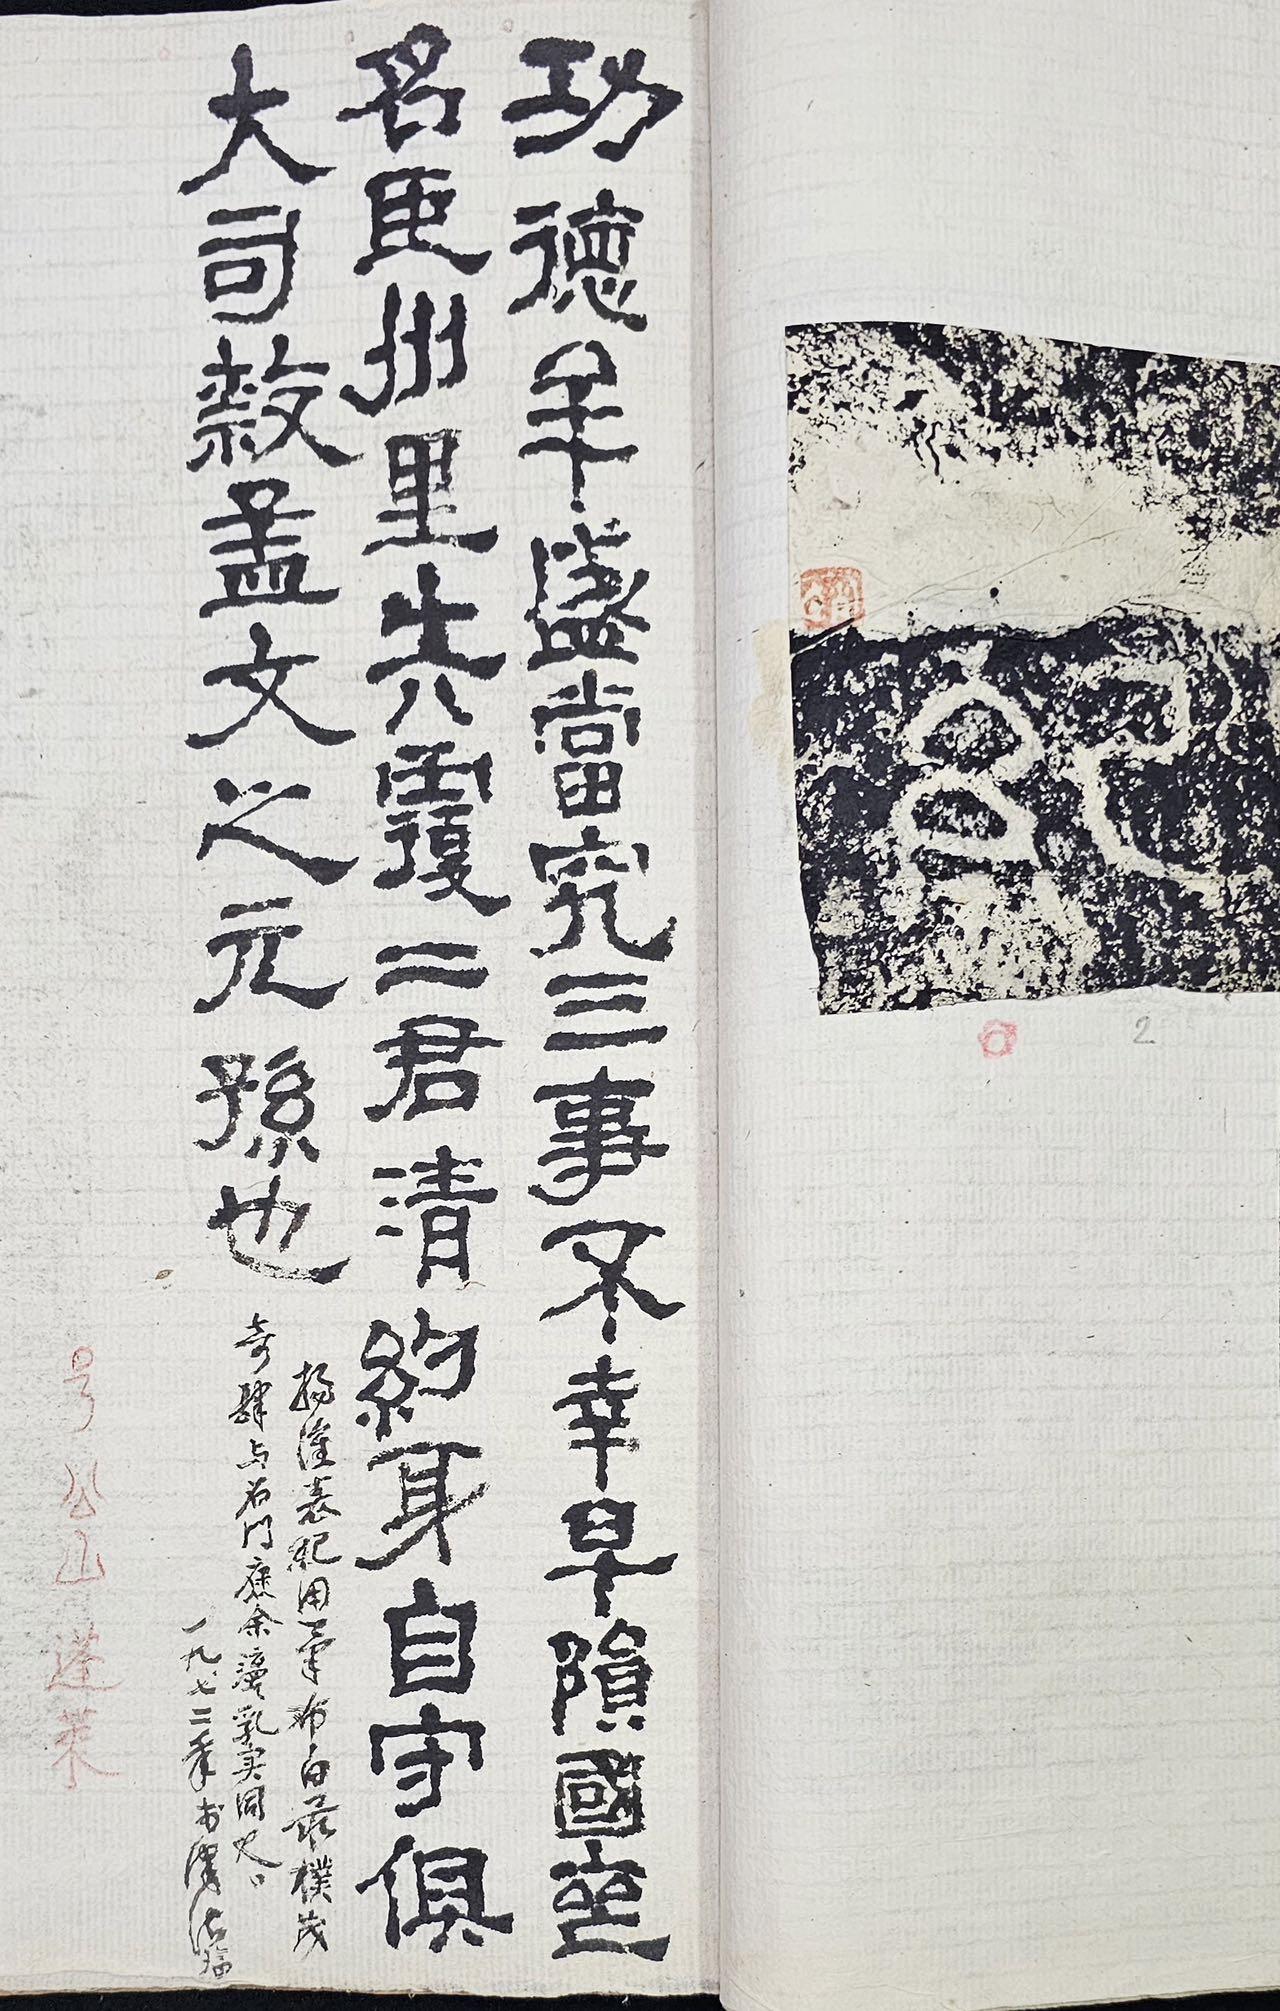 2
功德牟盛當究三事不幸早隕國喪
名臣州里失覆二君清約身自守俱
大司隸孟文之元孫也
楊淮表紀用筆布白最樸茂
奇肆与石門乳实同
一九七二年
公山蓬萊